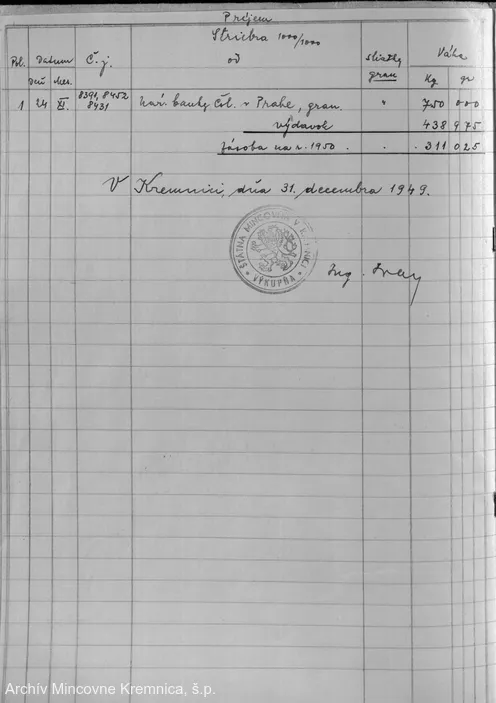 Príjem
Striebra 1000/1000
Pol. Datum Č. j. od sliatky Váha
deň Mes. gran Kg gr
8391, 8452
1 24 XI. 8431 Nár. banky Čsl. v Prahe, gran. " 750 000
výdavok 438 975
zásoba na r. 1950 . . . 311 025
V Kremnici, dňa 31. decembra 1949.
ŠTÁTNA MINCOVŇA V KREMNICI
VÝKUPŇA
Ing.
Archív Mincovne Kremnica, š.p.